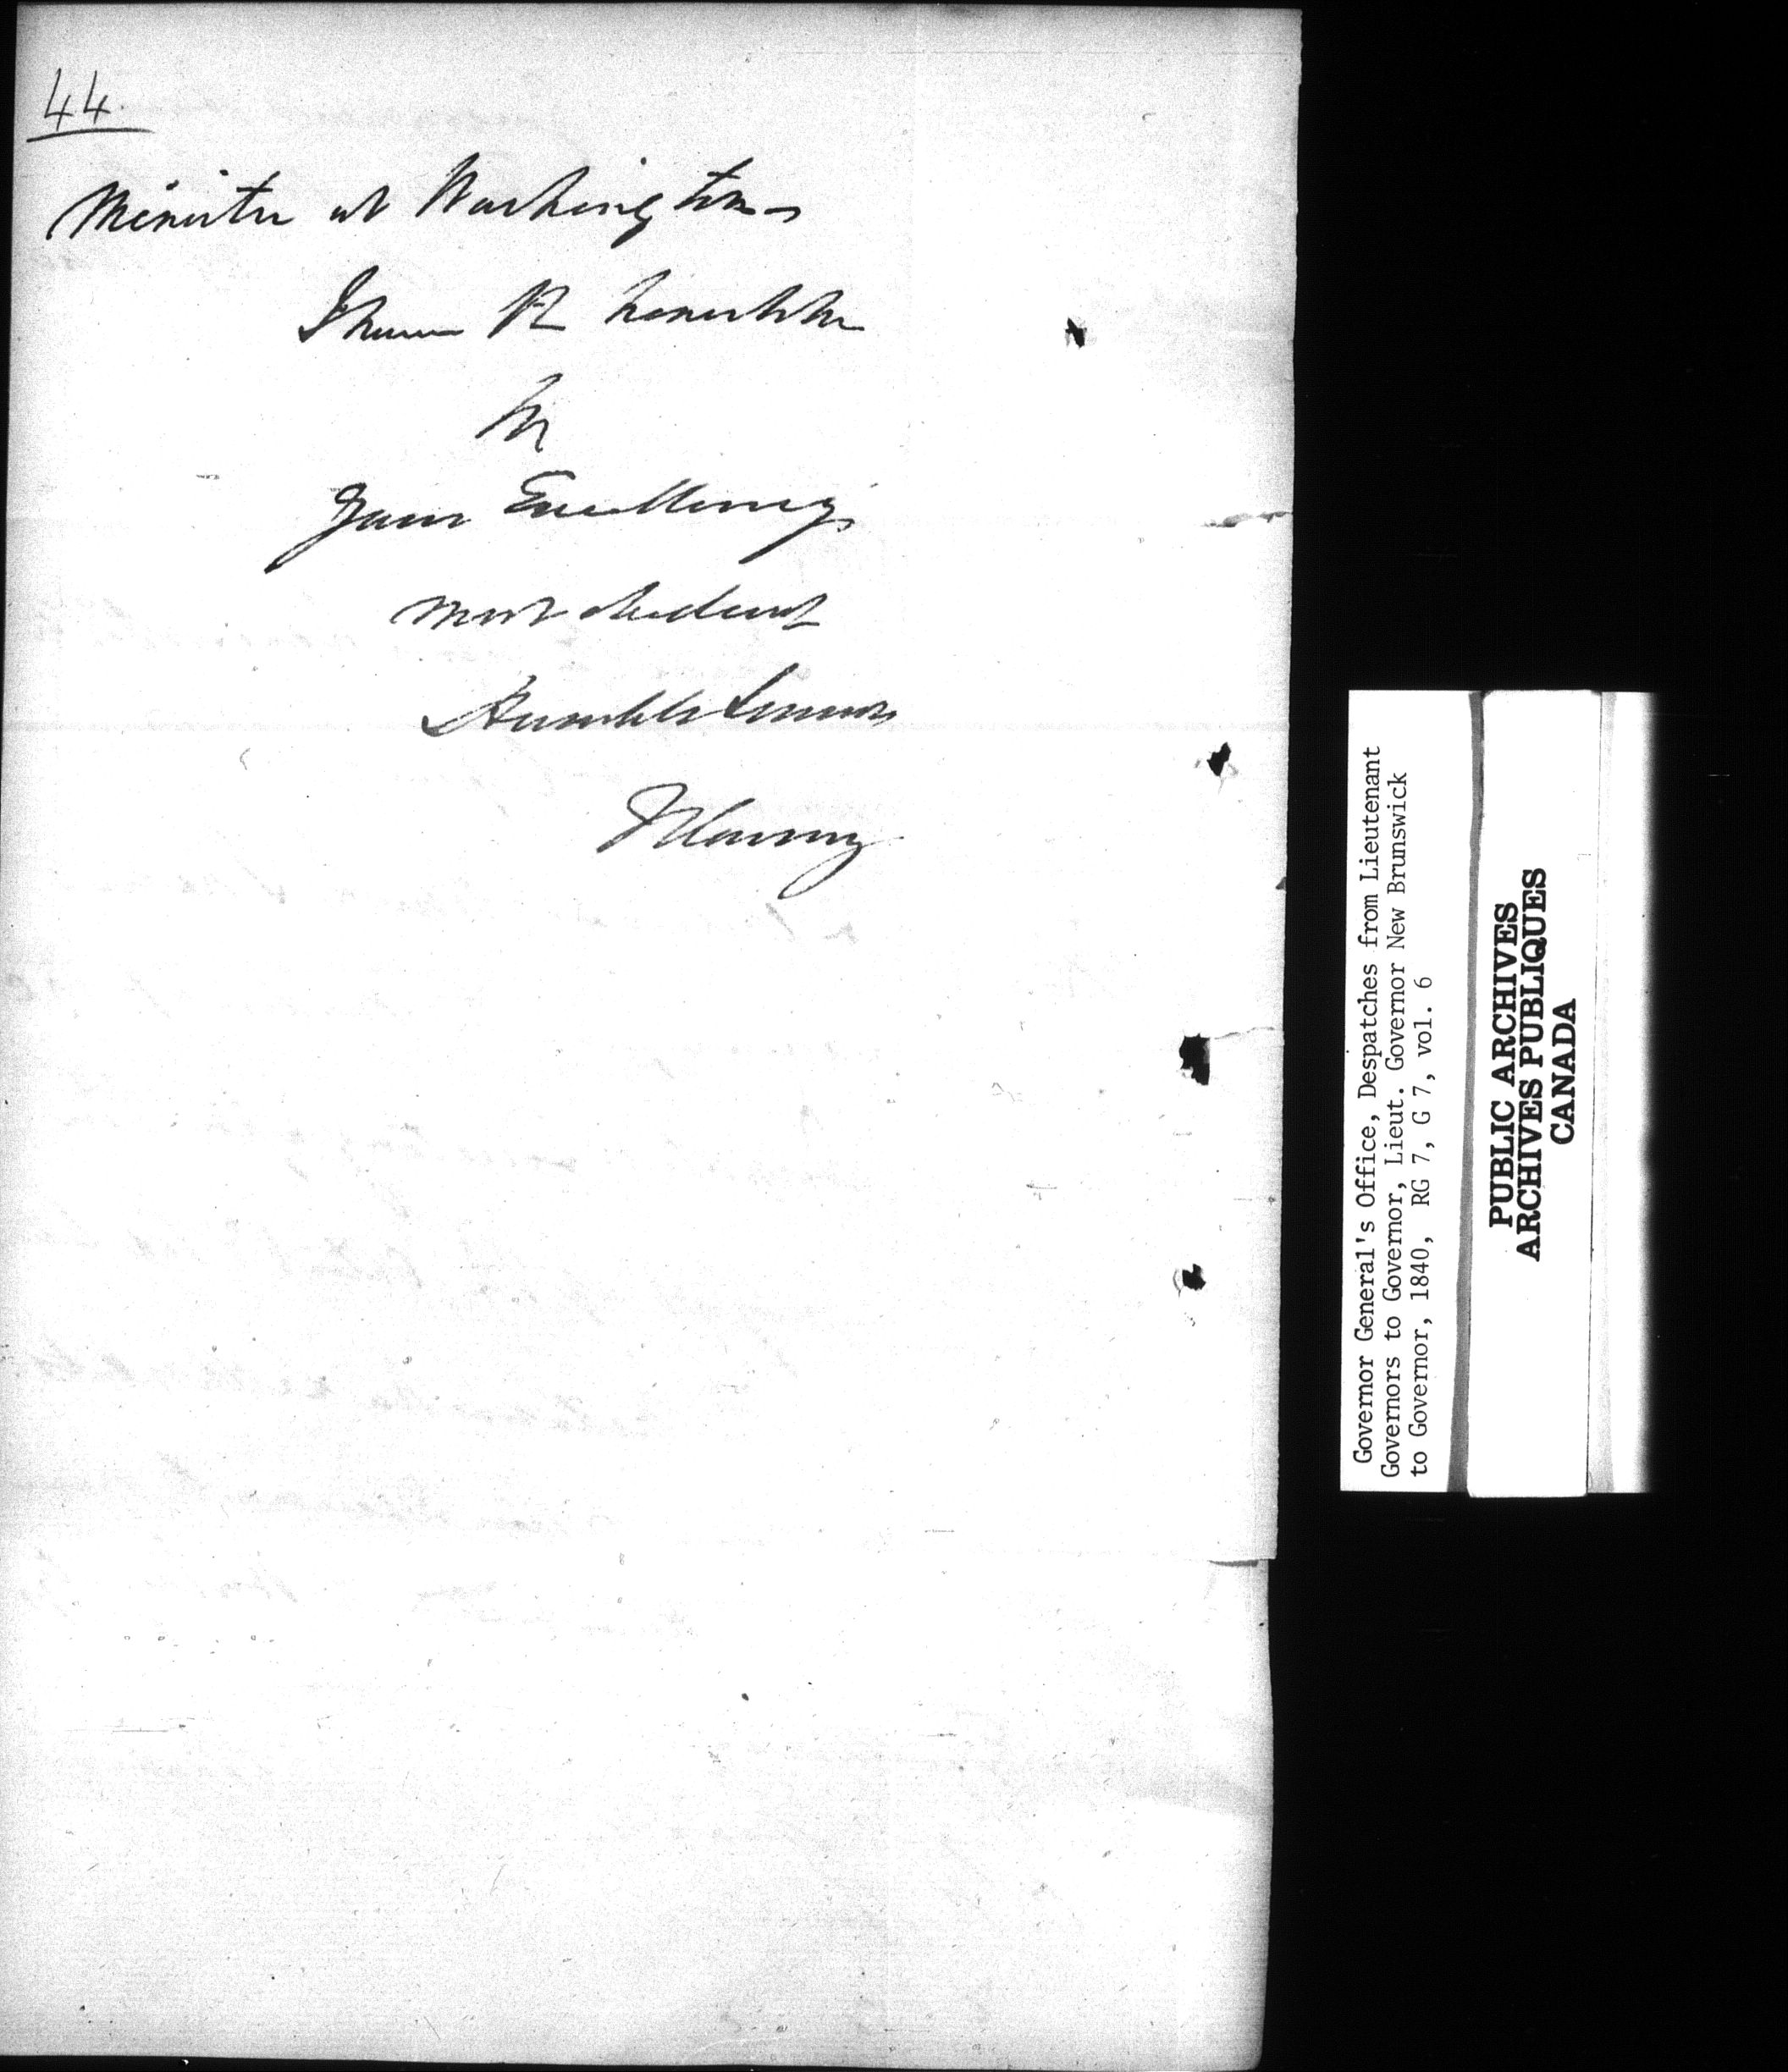 44.
Minister at Washington
I have the honor to be
Sir
Your Excellency's
most obedient
Humble Servant
J Harvey
Governor General's Office, Despatches from Lieutenant
Governors to Governor, Lieut. Governor New Brunswick
to Governor, 1840, RG 7, G 7, vol. 6
PUBLIC ARCHIVES
ARCHIVES PUBLIQUES
CANADA